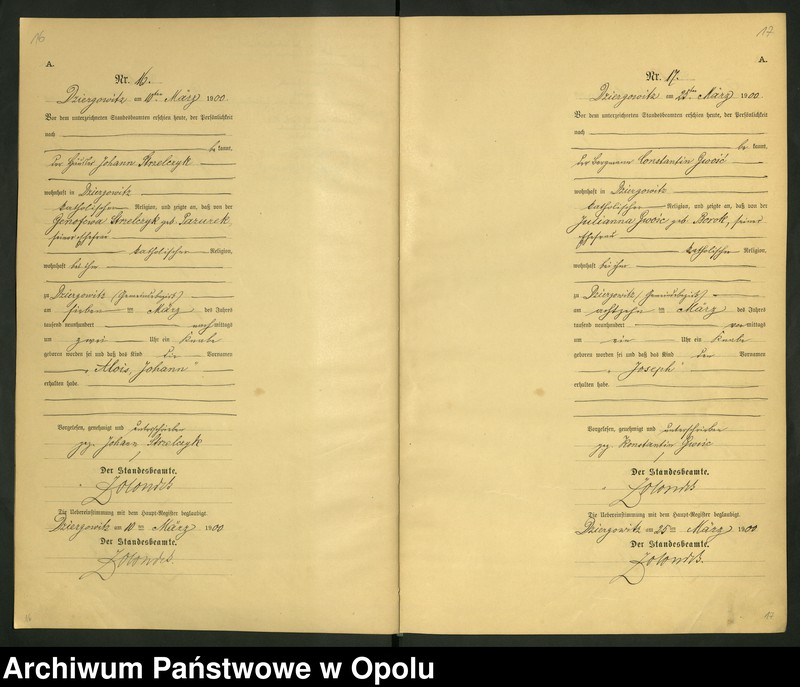 16
A.
Nr. 16.
Dziergowitz am 10ten März 1900.
Vor dem unterzeichneten Standesbeamten erschien heute, der Persönlichkeit
nach
be kannt,
der Häusler Johann Strelczyk
wohnhaft in Dziergowitz
katholischer Religion, und zeigte an, daß von der
Genofewa Strelczyk geb. Parurek,
seiner Ehefrau
katholischer Religion,
wohnhaft bei ihm
zu Dziergowitz (Gemeindebezirk)
am sieben ten März des Jahres
tausend neunhundert nach mittags
um zwei Uhr ein Knabe
geboren worden sei und daß das Kind die Vornamen
"Alois, Johann"
erhalten habe.
Vorgelesen, genehmigt und unterschrieben
gez. Johann Strelczyk
Der Standesbeamte.
Zolondek
Die Uebereinstimmung mit dem Haupt-Register beglaubigt.
Dziergowitz am 10ten März 1900
Der Standesbeamte.
Zolondek.
16
17
A.
Nr. 17.
Dziergowitz am 25ten März 1900.
Vor dem unterzeichneten Standesbeamten erschien heute, der Persönlichkeit
nach
be kannt,
der Bergmann Constantin Gwóić
wohnhaft in Dziergowitz
katholischer Religion, und zeigte an, daß von der
Julianna Gwóic geb. Borok, seiner
Ehefrau
katholischer Religion,
wohnhaft bei ihm
zu Dziergowitz (Gemeindebezirk)
am achtzehn ten März des Jahres
tausend neunhundert vor mittags
um ein Uhr ein Knabe
geboren worden sei und daß das Kind den Vornamen
"Joseph"
erhalten habe.
Vorgelesen, genehmigt und unterschrieben
gez. Konstantin Gwóic
Der Standesbeamte.
Zolondek
Die Uebereinstimmung mit dem Haupt-Register beglaubigt.
Dziergowitz am 25ten März 1900
Der Standesbeamte.
Zolondek.
17
Archiwum Państwowe w Opolu